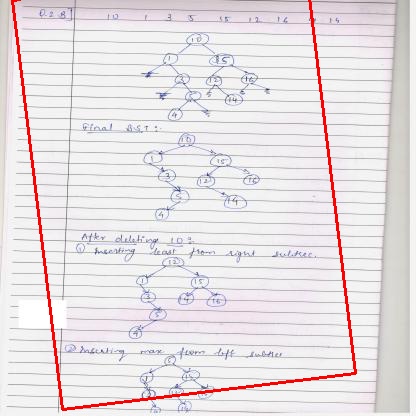 Q.2 B] 10 1 3 5 15 12 16 4 14
10
1 15
3 12 16
5 14
4
Final B.S.T :-
10
1 15
3 12 16
5 14
4
After deleting 10 :-
① Inserting least from right subtree.
12
1 15
3 14 16
5
4
② Inserting max from left subtree
5
1 15
3 12 16
4 14